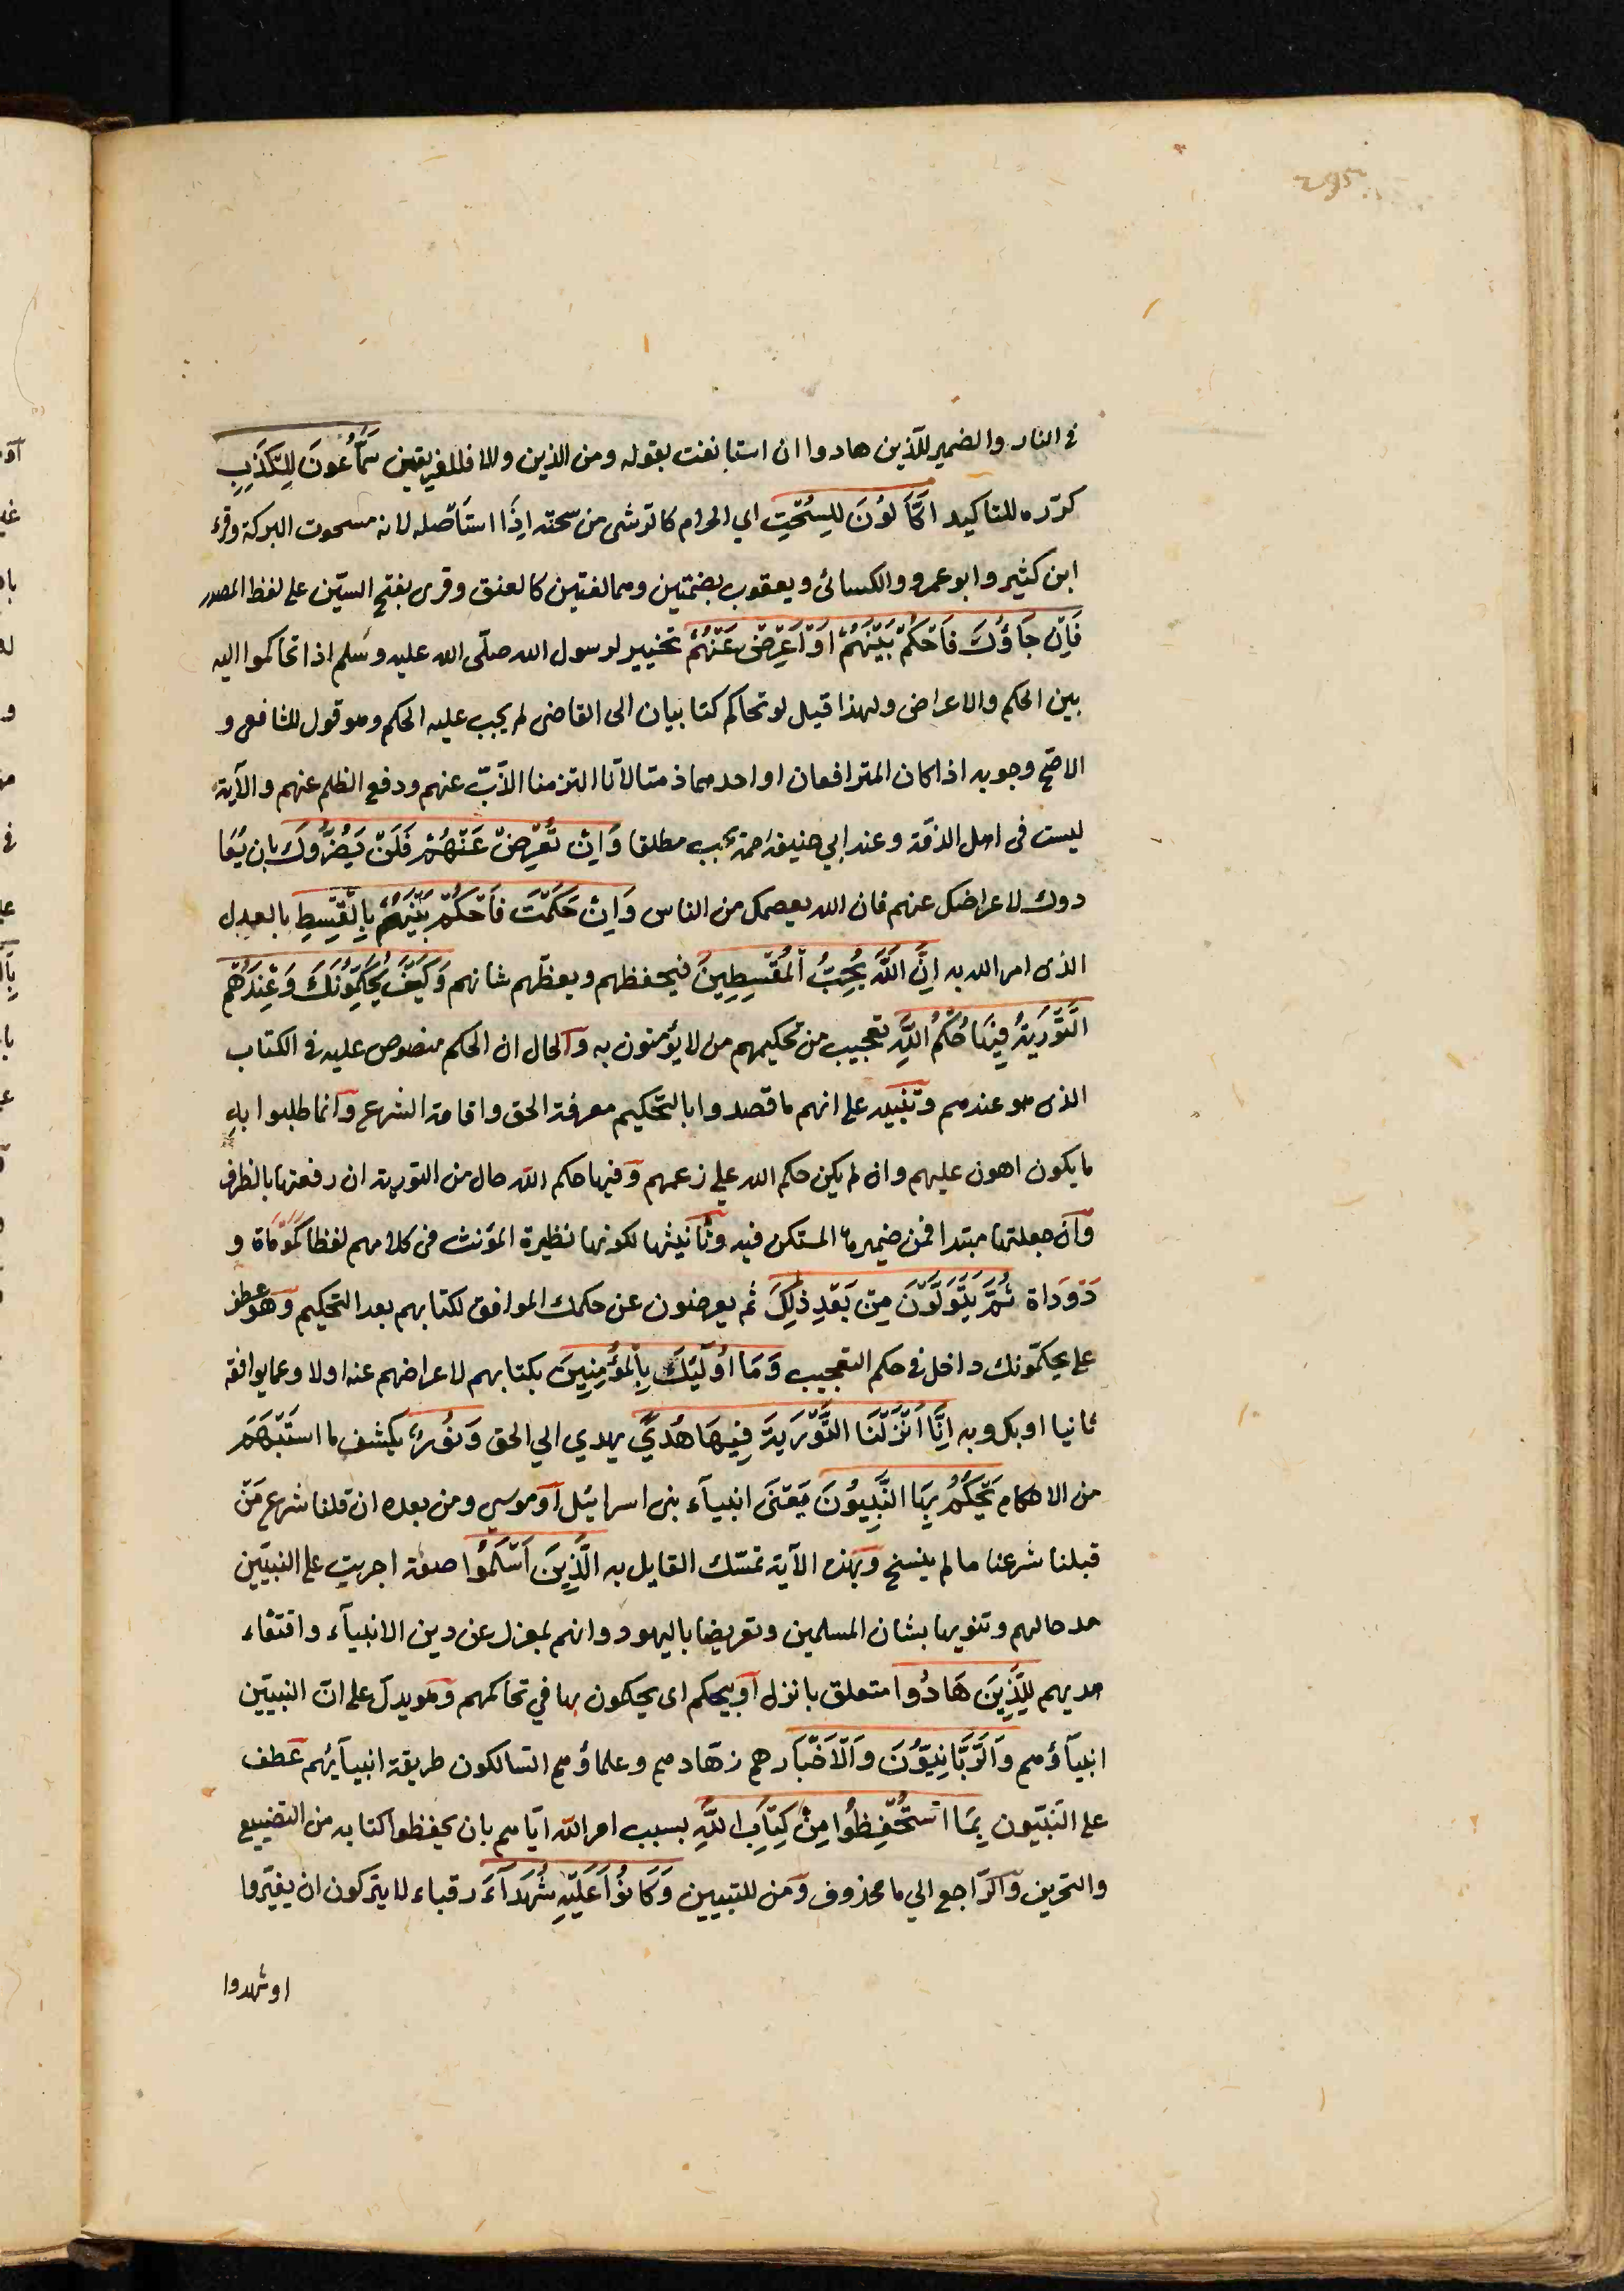 في النار والضمير للذين هادوا ان استانفت بقوله ومن الذين والا فللفريقين سَمَّاعُونَ لِلْكَذِبِ
كرّره للتاكيد اَكَّالُونَ لِلسُّحْتِ اي الحرام كالرشى من سحته اِذَا استأصله لانه مسحوت البركة وقرء
ابن كثير وابو عمرو والكسائى ويعقوب بضمتين وهما لغتين كالعنق وقرى بفتح السّين على لفظ المصدر
فَاِنْ جَاؤُكَ فَاحْكُمْ بَيْنَهُمْ اَوْ اَعْرِضْ عَنْهُمْ تخيير لرسول الله صلّى الله عليه وسَلم اذا تحاكموا اليه
بين الحكم والاعراض ولهذا قيل لو تحاكم كتابيان الى القاضى لم يجب عليه الحكم وهو قول للشافعى و
الاصّح وجوبه اذا كان المترافعان او احدهما ذمتا لاَنا التزمنا الذّبّ عنهم ودفع الظلم عنهم والآية
ليست فى اهل الذمّة وعند ابي حنيفة يجب مطلقا وَاِنْ تُعْرِضْ عَنْهُمْ فَلَنْ يَضُرُّوكَ بان يُعَا
دوك لاعراضك عنهم فان الله يعصمك من الناس وَاِنْ حَكَمْتَ فَاحْكُمْ بَيْنَهُمْ بِالْقِسْطِ بالعدل
الذى امر الله به اِنَّ اللَّهَ يُحِبُّ الْمُقْسِطِينَ فيحفظهم ويعظّم شانهم وَكَيْفَ يُحَكِّمُونَكَ وَعِنْدَهُمُ
التَّوْرَيةُ فِيهَا حُكْمُ اللَّهِ تعجيب من تحكيمهم من لا يؤمنون به وَالحال ان الحكم منصوص عليه فى الكتاب
الذى هو عندهم وتنبيه على انهم ما قصدوا بالتحكيم معرفة الحق واقامة الشرع وَانما طلبوا به
ما يكون اهون عليهم وان لم يكن حكم الله على زعمهم وَفيها حكم الله حال من التورية ان رفعتها بالظرف
وَان جعلتها مبتدا فمن ضميرها المستكن فيه وتَانيثها لكونها نظيرة المؤنث فى كلامهم لفظا كَمَوْمَاة و
دَوْدَاة ثُمَّ يَتَوَلَّوْنَ مِنْ بَعْدِ ذٰلِكَ ثم يعرضون عن حكمك الموافق لكتابهم بعد التحكيم وَهو عطف
على يحكّمونك داخل فى حكم التعجيب وَمَا اُولٰئِكَ بِالْمُؤْمِنِينَ بكتابهم لاعراضهم عنه اولا وعما يوافقه
ثانيا او بك وبه اِنَّا اَنْزَلْنَا التَّوْرَيةَ فِيهَا هُدًى يهدي الي الحق وَنُورٌ يكشف ما استَبْهَمَ
من الاحكام يَحْكُمُ بِهَا النَّبِيُّونَ يَعْنى انبيآء بنى اسرائيل اَو موسى ومن بعده ان قلنا شرع مَنْ
قبلنا شرعنا ما لم ينسخ وَبهذه الآية تمسّك القايل به الَّذِينَ اَسْلَمُوا صفة اجريت على النبيّين
مدحا لهم وتنويها بشان المسلمين وتعريضا باليهود وانهم بمعزل عن دين الانبيآء واقتفاء
هديهم لِلَّذِينَ هَادُوا متعلق بانزل اَو بيحكم اى يحكمون بها في تحاكمهم وَهو يدلّ على انّ النبيّين
انبيآؤهم وَالرَّبَّانِيُّونَ وَالْاَحْبَارُ هم زهّادهم وعلماؤهم السّالكون طريقة انبيآئهم عَطف
على النّبيّون بِمَا اسْتُحْفِظُوا مِنْ كِتَابِ اللَّهِ بسبب امر اللّه ايّاهم بان يحفظوا كتابه من التضييع
والتحريف وَالرّاجع الي ما محذوف وَمن للتبيين وَكَانُوا عَلَيْهِ شُهَدَآءَ رقباء لا يتركون ان يغيّروا
او شهدوا